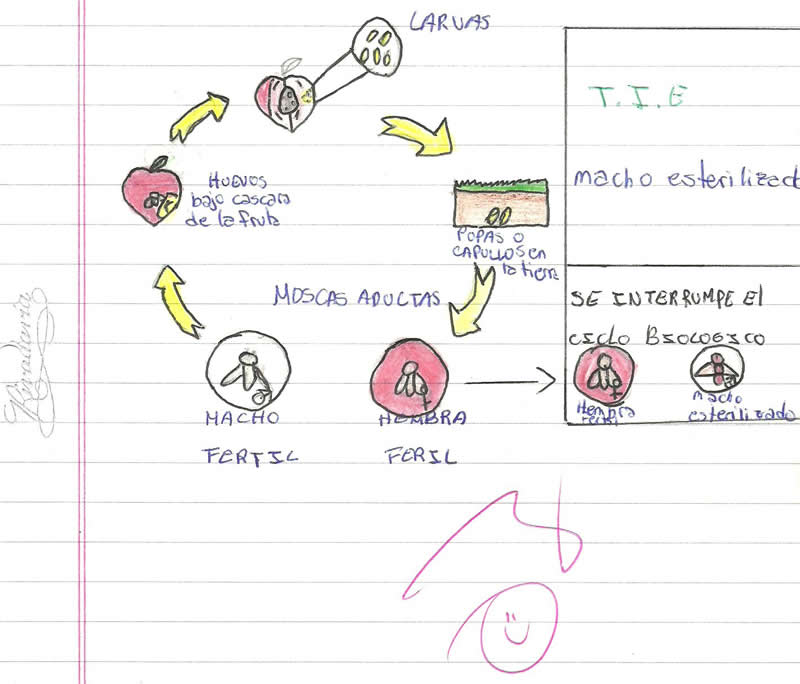 LARVAS
HUEVOS
bajo cascara
de la fruta
POPAS O
CAPULLOS en
la tierra
MOSCAS ADULTAS
MACHO
FERTIL
HEMBRA
FERIL
T.I.E
macho esterilizad
SE INTERRUMPE El
CICLO BIOLOGICO
Hembra
Macho
esterilizado
Rivadavia